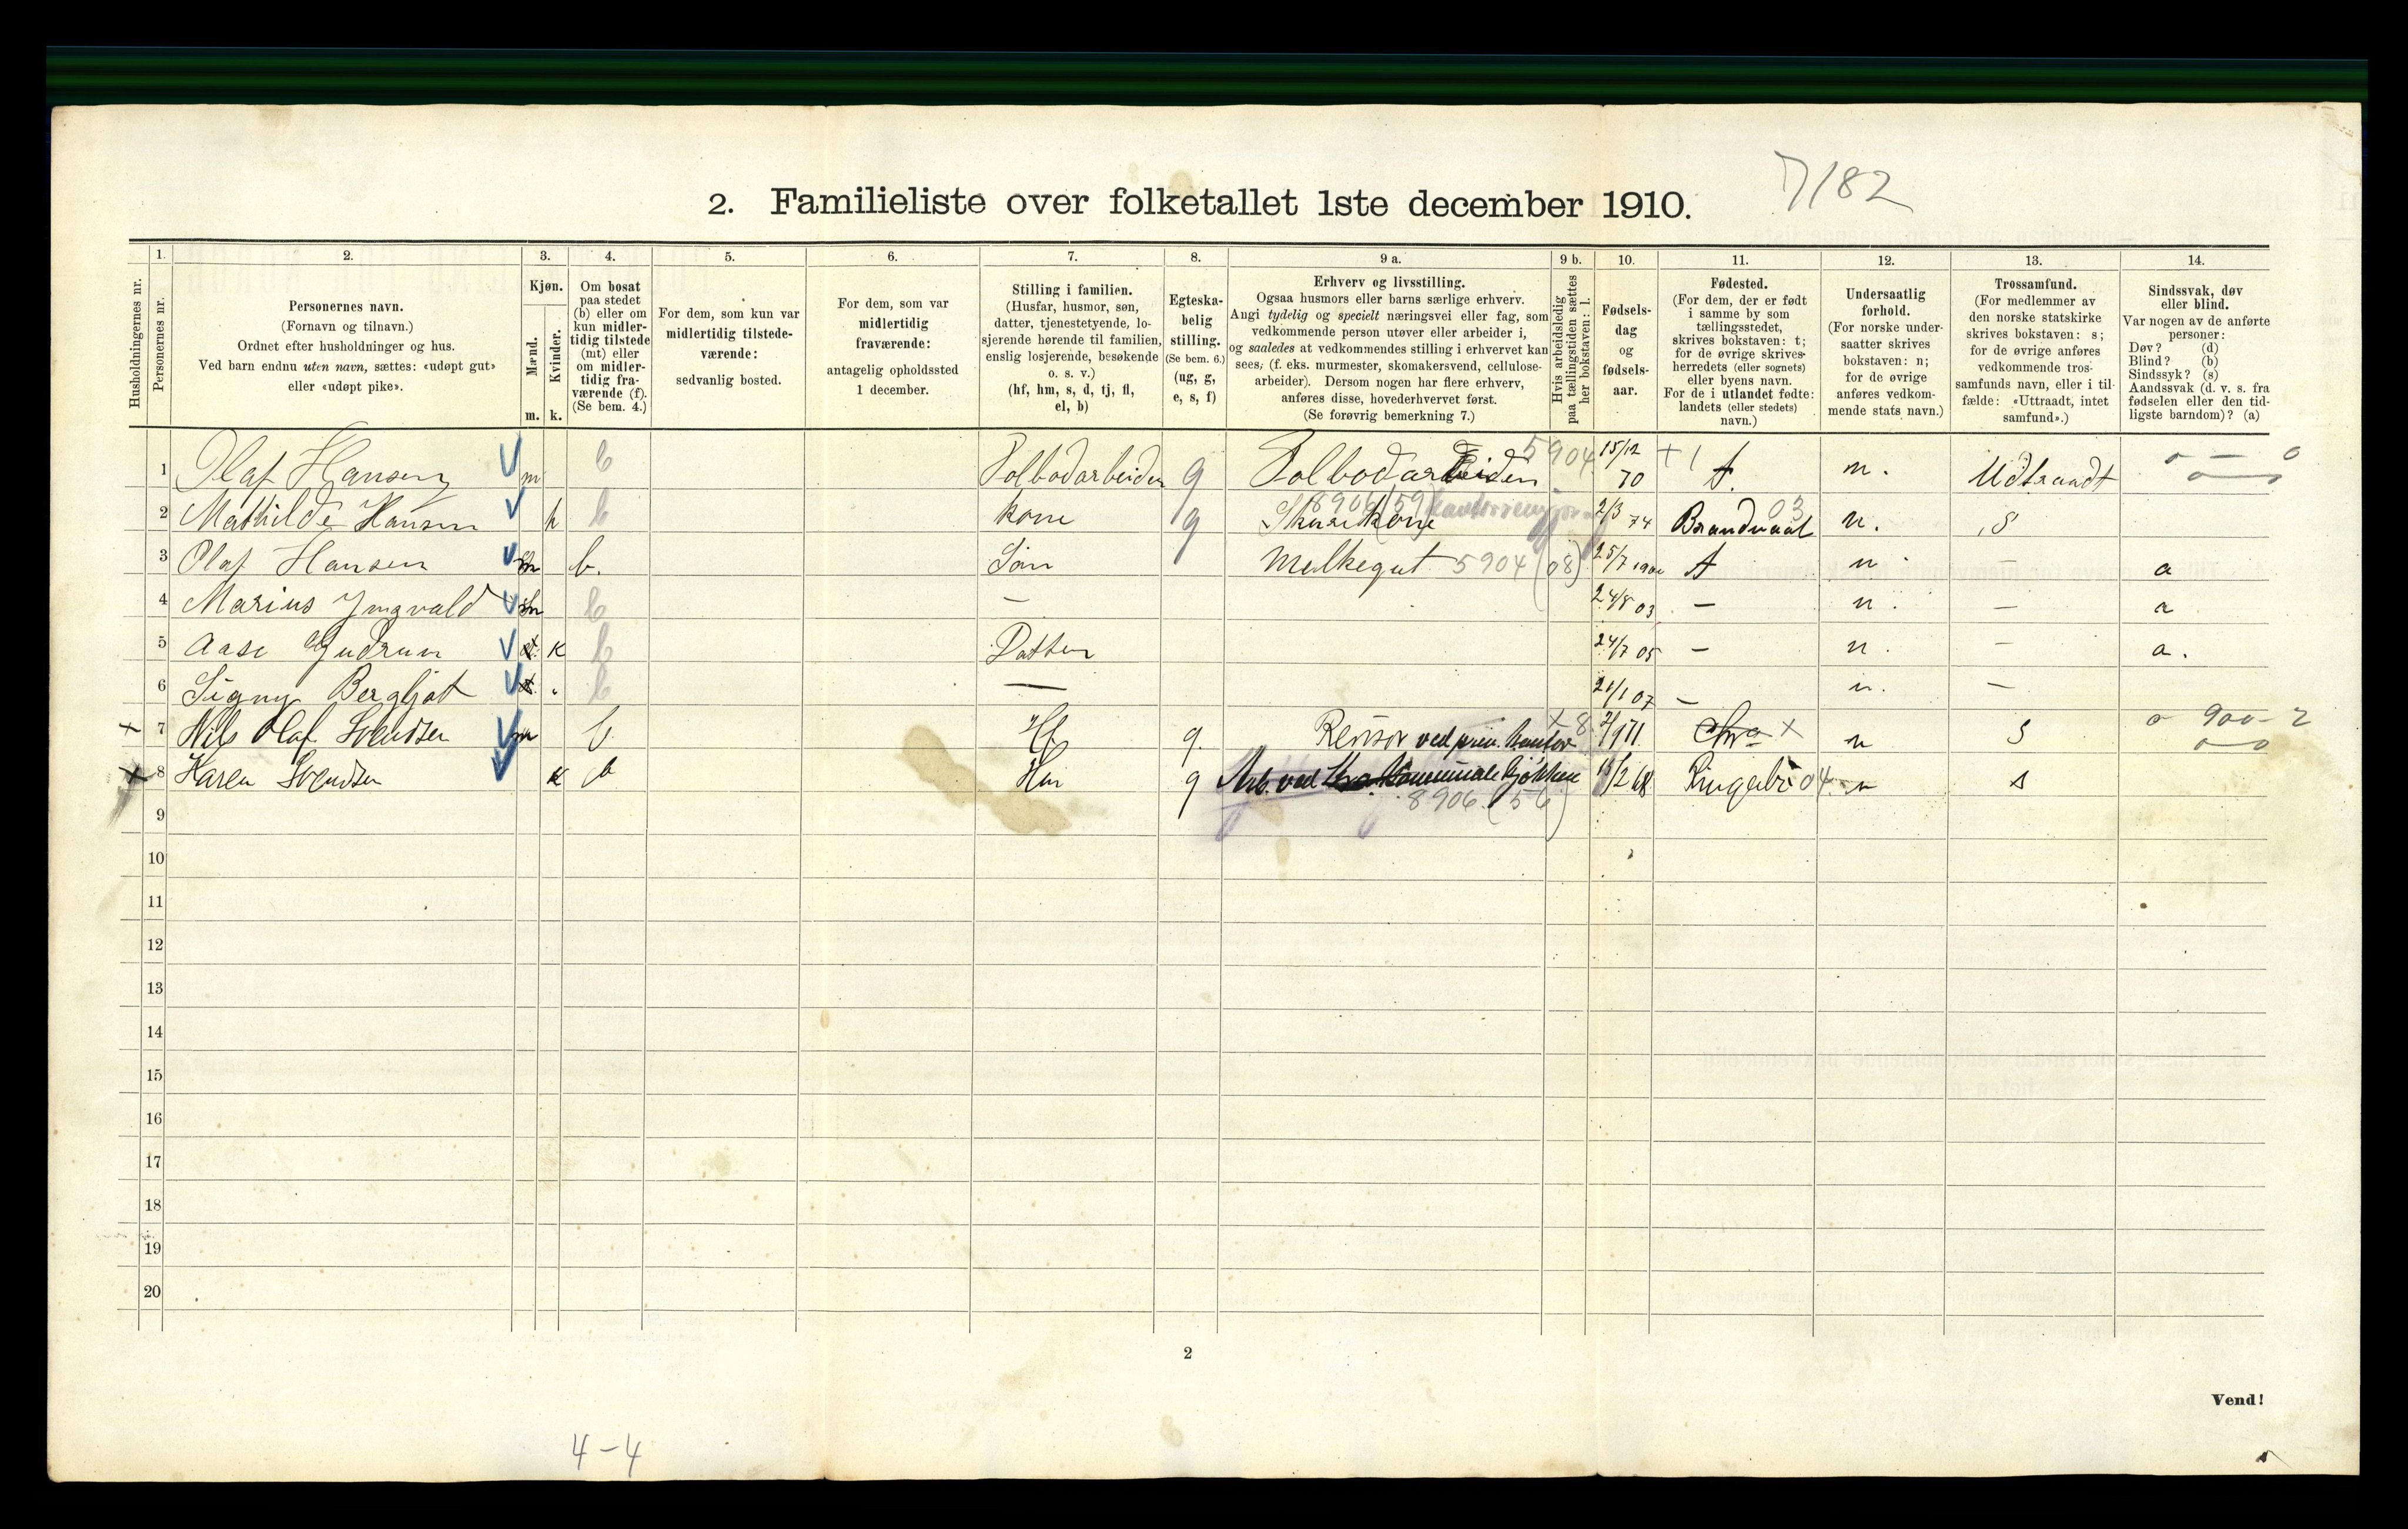 7/82
2. Familieliste over folketallet 1ste december 1910.
Husholdningernes nr.
1. Personernes nr.
2. Personernes navn.
(Fornavn og tilnavn.)
Ordnet efter husholdninger og hus.
Ved barn endnu uten navn, sættes: «udøpt gut»
eller «udøpt pike».
3. Kjøn.
Mænd. m.
Kvinder. k.
4. Om bosat
paa stedet
(b) eller om
kun midler-
tidig tilstede
(mt) eller
om midler-
tidig fra-
værende (f).
(Se bem. 4.)
5. For dem, som kun var
midlertidig tilstede-
værende:
sedvanlig bosted.
6. For dem, som var
midlertidig
fraværende:
antagelig opholdssted
1 december.
7. Stilling i familien.
(Husfar, husmor, søn,
datter, tjenestetyende, lo-
sjerende hørende til familien,
enslig losjerende, besøkende
o. s. v.)
(hf, hm, s, d, tj, fl,
el, b)
8. Egteska-
belig
stilling.
(Se bem. 6.)
(ug, g,
e, s, f)
9 a. Erhverv og livsstilling.
Ogsaa husmors eller barns særlige erhverv.
Angi tydelig og specielt næringsvei eller fag, som
vedkommende person utøver eller arbeider i,
og saaledes at vedkommendes stilling i erhvervet kan
sees, (f. eks. murmester, skomakersvend, cellulose-
arbeider). Dersom nogen har flere erhverv,
anføres disse, hovederhvervet først.
(Se forøvrig bemerkning 7.)
9 b. Hvis arbeidsledig
paa tællingstiden sættes
her bokstaven: l.
10. Fødsels-
dag
og
fødsels-
aar.
11. Fødested.
(For dem, der er født
i samme by som
tællingsstedet,
skrives bokstaven: t;
for de øvrige skrives
herredets (eller sognets)
eller byens navn.
For de i utlandet fødte:
landets (eller stedets)
navn.)
12. Undersaatlig
forhold.
(For norske under-
saatter skrives
bokstaven: n;
for de øvrige
anføres vedkom-
mende stats navn.)
13. Trossamfund.
(For medlemmer av
den norske statskirke
skrives bokstaven: s;
for de øvrige anføres
vedkommende tros-
samfunds navn, eller i til-
fælde: «Uttraadt, intet
samfund».)
14. Sindssvak, døv
eller blind.
Var nogen av de anførte
personer:
Døv? (d)
Blind? (b)
Sindssyk? (s)
Aandssvak (d. v. s. fra
fødselen eller den tid-
ligste barndom)? (a)
1 Olaf Hansen m b Tolbodarbeider g Tolbodarbeider 5904 15/12 70 t. n. Udtraadt
2 Mathilde Hansen k b kone g Skurekone 8906 (59) 2/3 74 03 n. S
3 Olaf Hansen m b. Søn Melkegut 5904 (08) 25/7 t n - a
4 Marius Yngvald m b - 24/8 03 - n. - a
5 Aase Gudrun k b Datter 24/7 05 - n. - a.
6 Signy Bergljot b — 21/1 07 - n. -
7 Nils Olaf Svendsen m b Hf g. ved priv. kontor n S 900-2
8 Karen Svendsen k b Hm g Arb. ved kommunale kjøkken 8906 (56) 15/2 68 Ringebo 04 n s
9
10
11
12
13
14
15
16
17
18
19
20
2
Vend!
4-4